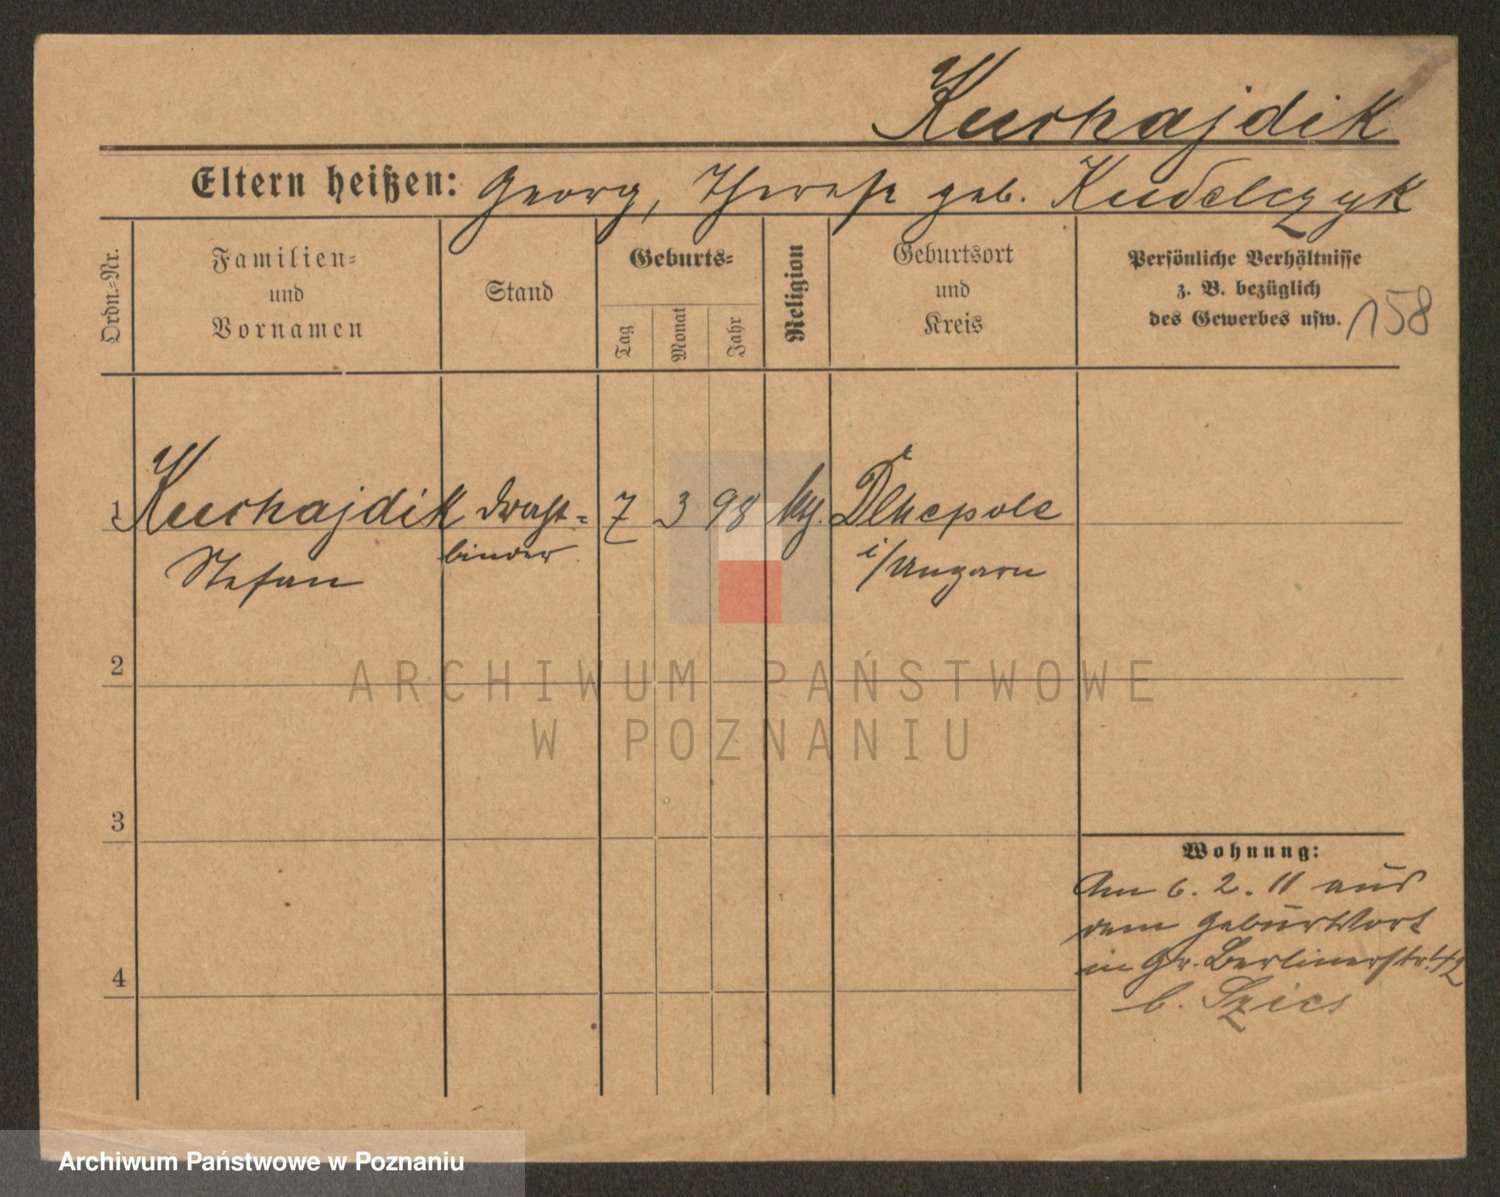 Kuchajdik
Eltern heißen: Georg, Therese geb. Kudelczyk
Ordn.-Nr.
Familien-
und
Vornamen
Stand
Geburts-
Tag
Monat
Jahr
Religion
Geburtsort
und
Kreis
Persönliche Verhältnisse
z. B. bezüglich
des Gewerbes usw.
158
1 Kuchajdik Draht- 7 3 98 Dlhepole
Stefan binder i/Ungarn
2
3
4
Wohnung:
Am 6. 2. 11 aus
dem Geburtsort
in Gr. Berlinerstr. 42
b. Szics
ARCHIWUM PAŃSTWOWE
W POZNANIU
Archiwum Państwowe w Poznaniu